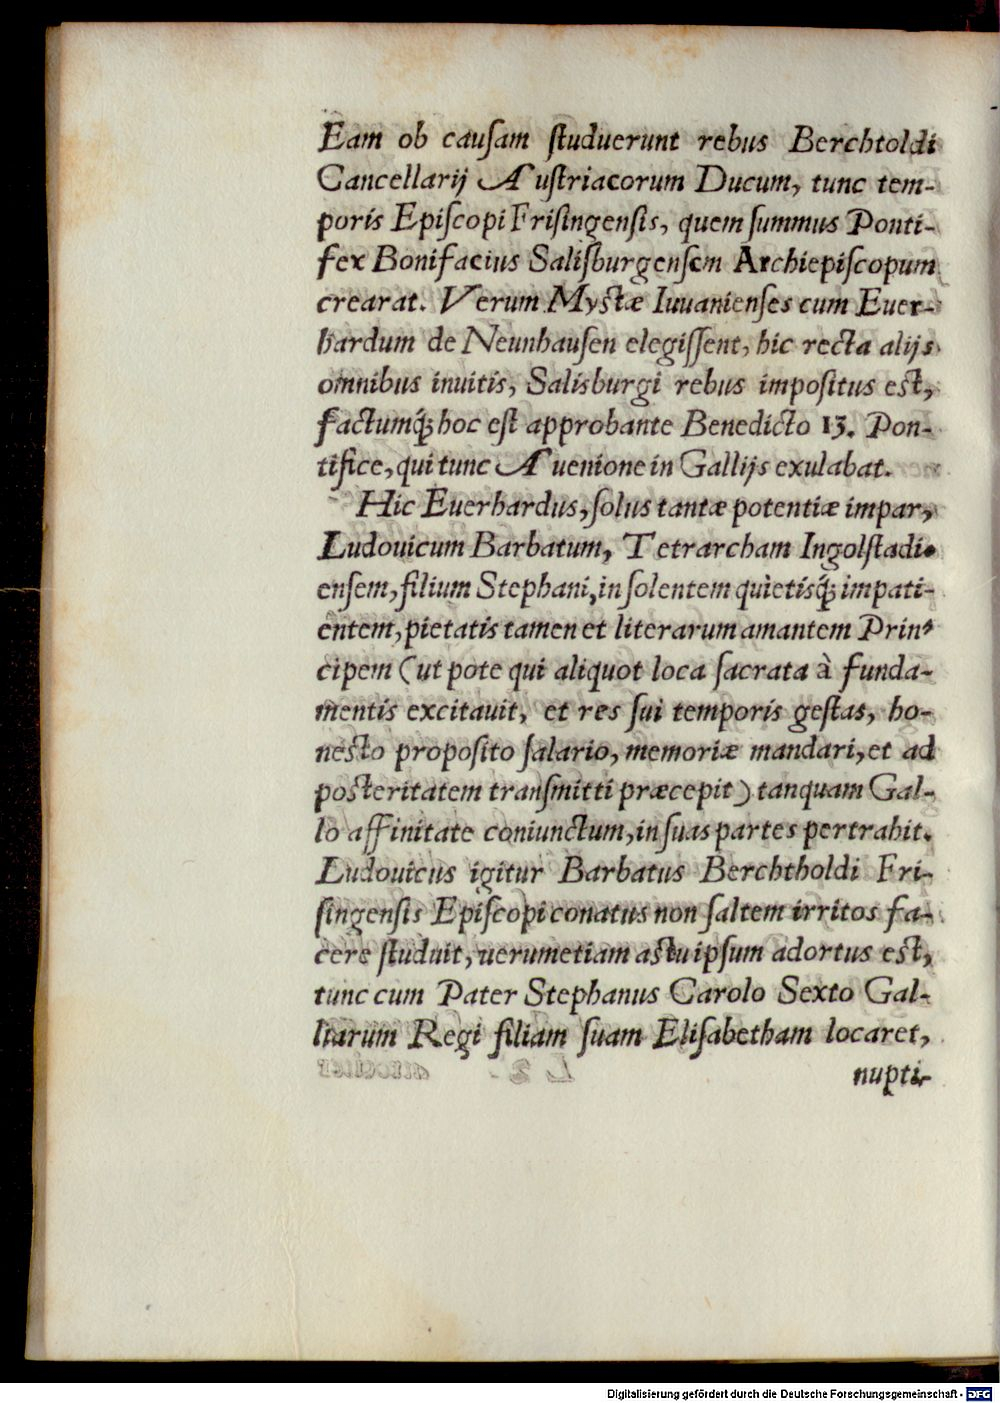 Eam ob cauſam ſtuduerunt rebus Berchtoldi
Cancellarij Auſtriacorum Ducum, tunc tem-
poris Epiſcopi Friſingenſis, quem ſummus Ponti-
fex Bonifacius Saliſburgenſem Archiepiſcopum
crearat. Verum Myſtæ Iuuanienſes cum Euer-
hardum de Neunhauſen elegiſſent, hic recta alijs
omnibus inuitis, Salisburgi rebus impoſitus eſt,
factumq́; hoc eſt approbante Benedicto 13. Pon-
tifice, qui tunc Auenione in Gallijs exulabat.
Hic Euerhardus, ſolus tantæ potentiæ impar,
Ludouicum Barbatum, Tetrarcham Ingolſtadi-
enſem, filium Stephani, inſolentem quietisq́; impati-
entem, pietatis tamen et literarum amantem Prin-
cipem (ut pote qui aliquot loca ſacrata à funda-
mentis excitauit, et res ſui temporis geſtas, ho-
neſto propoſito ſalario, memoriæ mandari, et ad
poſteritatem tranſmitti præcepit) tanquam Gal-
lo affinitate coniunctum, in ſuas partes pertrahit.
Ludouicus igitur Barbatus Berchtholdi Fri-
ſingenſis Epiſcopi conatus non ſaltem irritos fa-
cere ſtuduit, uerumetiam aſtu ipſum adortus eſt,
tunc cum Pater Stephanus Carolo Sexto Gal-
liarum Regi filiam ſuam Eliſabetham locaret,
nupti-
Digitalisierung gefördert durch die Deutsche Forschungsgemeinschaft - DFG